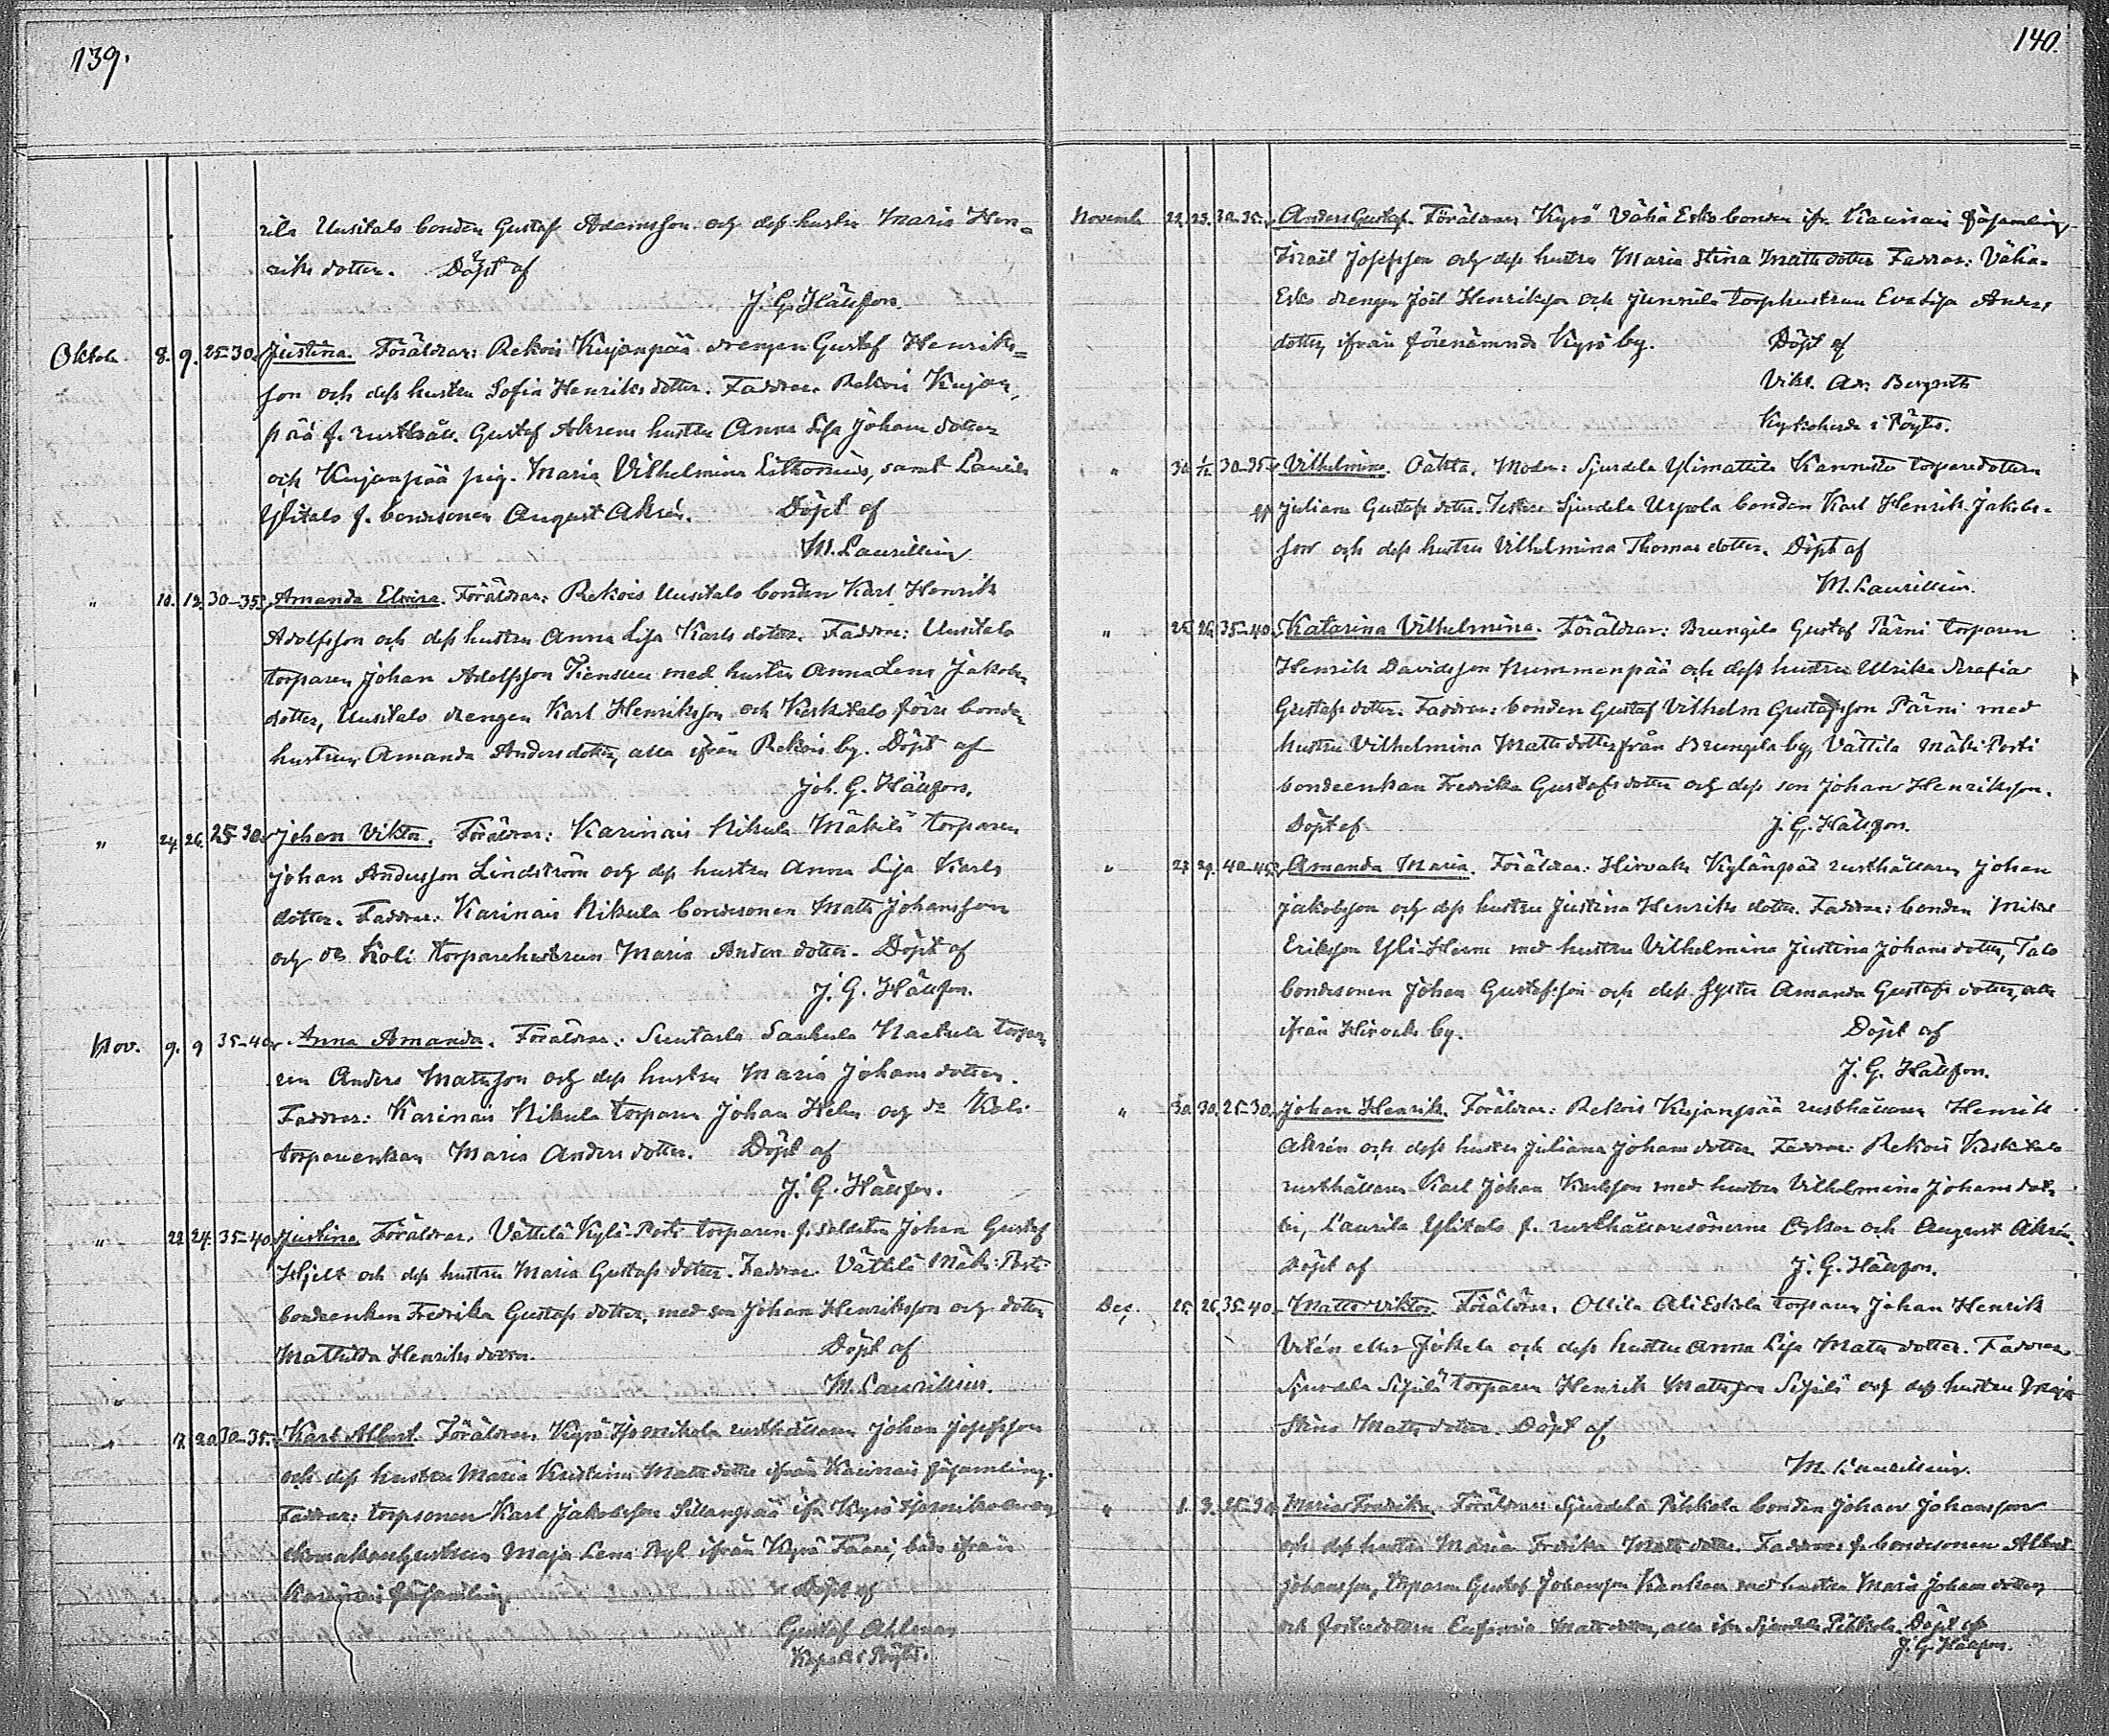 139.
rila Uusitalo bonden Gustaf Adamsson och dess hustru Maria Hen=
riks dotter. Döpt af
J. G. Hällfors.
Oktob. 8. 9. 25-30. Justina. Föräldrar: Rekois Kujanpää drengen Gustaf Henriks=
son och dess hustru Sofia Henriks dotter. Faddrar: Rekois Kujan,
pää f. rusthåll. Gustaf Ahrens hustru Anna Lisa Johans dotter
och Kujanpää pig. Maria Vilhelmina Lithonius, samt Laurila
Ylitalo f. bondesonen August Ahrén. Döpt af
M. Laurillius
" 10. 12. 30-35. Amanda Elvira. Föräldrar: Rekois Uusitalo bonden Karl Henrik
Adolfsson och dess hustru Anna Lisa Karls dotter. Faddrar: Uusitalo
torparen Johan Adolfsson med hustru Anna Lena Jakobs
dotter, Uusitalo drengen Karl Henriksson och Keskitalo förre bonde
hustrun Amanda Anders dotter, alla ifrån Rekois by. Döpt af
Joh. G. Hällfors.
" 24. 26. 25-30. Johan Viktor. Föräldrar: Karinais Nikula Mäkilä torparen
Johan Andersson Lindström och dess hustru Anna Lisa Karls
dotter. Faddrar: Karinais Nikula bondesonen Matts Johansson
och do Koli torparehustrun Maria Anders dotter. Döpt af
J. G. Hällfors.
Nov. 9. 9 35-40. Anna Amanda. Föräldrar: Suutarla Saukula torpa-
ren Anders Mattsson och dess hustru Maria Johans dotter.
Faddrar: Karinais Nikula torparen Johan Helm och do Koli
torpareenkan Maria Anders dotter. Döpt af
J. G. Hällfors.
" 22. 24. 35-40. Justina Föräldrar: Vättilä Kylä-Porti torparen f. soldaten Johan Gustaf
Hjelt och dess hustru Maria Gustafs dotter. Faddrar: Vättilä Mäki-Porti
bondeenkan Fredrika Gustafs dotter, med son Johan Henriksson och dotter
Mathilda Henriks dotter. Döpt af
M. Laurillius.
" 17. 20. 30-35. Karl Albert. Föräldrar: Kyrö rusthållaren Johan Josefsson
och dess hustru Maria Kristina Matts dotter ifrån Karinais församling.
Faddrar: torpsonen Karl Jakobsson Sillanpää ifr. Kyrö
skomakarehustrun Maja Lena ifrån Kyrö, båda ifrån
Karinais församling. Döpt af
Gustaf Ahlman
Kapellan i Pöytis.
140.
Novemb. 22. 23. 30-35. Anders Gustaf. Föräldrar: Kyrö Vähä Esko bonden ifr. Karinais församling
Israël Josefsson och dess hustru Maria Stina Matts dotter Faddrar: Vähä-
Esko drengen Joël Henriksson och Junnila torphustrun Eva Lisa Anders
dotter, ifrån förenämnde Kyrö by. Döpt af
Vikt. Ad. Bergroth
Kyrkoherde i Pöytis.
" 30. 1/12. 30-35. Vilhelmina. Oäkta. Moder: Sjurdela Ylimattila Kannisto torparedottern
Juliana Gustafs dotter. Testes: Sjurdela Uspola bonden Karl Henrik Jakobs-
son och dess hustru Vilhelmina Thomas dotter. Döpt af
M. Laurillius.
" 25. 26. 35-40. Katarina Vilhelmina. Föräldrar: Brungila Gustaf Pärni torparen
Henrik Davidsson Nummenpää och dess hustru Ulrika
Gustafs dotter. Faddrar: bonden Gustaf Vilhelm Gustafsson Pärni med
hustru Vilhelmina Matts dotter från Brungila by, Vättilä Mäki-Porti
bondeenkan Fredrika Gustafs dotter och dess son Johan Henriksson.
Döpt af J. G. Hällfors.
" 27. 29. 40-45. Amanda Maria. Föräldrar: Hirvoks Kylänpää rusthållaren Johan
Jakobsson och dess hustru Justina Henriks dotter. Faddrar: bonden Mikel
Eriksson Yli-Herne med hustru Vilhelmina Justina Johans dotter, Talo
bondesonen Johan Gustafsson och dess syster Amanda Gustafs dotter, alla
ifrån Hirvoks by. Döpt af
J. G. Hällfors.
" 30. 30. 25-30. Johan Henrik. Föräldrar: Rekois Kujanpää rusthållaren Henrik
Ahrén och dess hustru Juliana Johans dotter Faddrar: Rekois Keskitalo
rusthållaren Karl Johan Karlsson med hustru Vilhelmina Johans dot-
ter, Laurila Ylitalo f. rusthållaresönerne Oskar och August Ahrén.
Döpt af J. G. Hällfors.
Dec. 25. 26. 35-40. Matts Viktor. Föräldrar: Ollila Ali Eskola torparen Johan Henrik
Vitén eller Jokela och dess hustru Anna Lisa Matts dotter. Faddrar:
Sjurdela Seppälä torparen Henrik Mattsson Seppälä och dess hustru Maja
Stina Matts dotter. Döpt af
M. Laurillius.
" 1. 3. 25-30 Maria Fredrika. Föräldrar: Sjurdela Pikkola bonden Johan Johansson
och dess hustru Maria Fredrika Matts dotter. Faddrar: f. bondesonen Albert
Johansson, torparen Gustaf Johansson Kankare med hustru Maria Johans dotter,
och fosterdottern Eufemia Matts dotter, alla ifr. Sjurdela Pikkola. Döpt af
J. G. Hällfors.